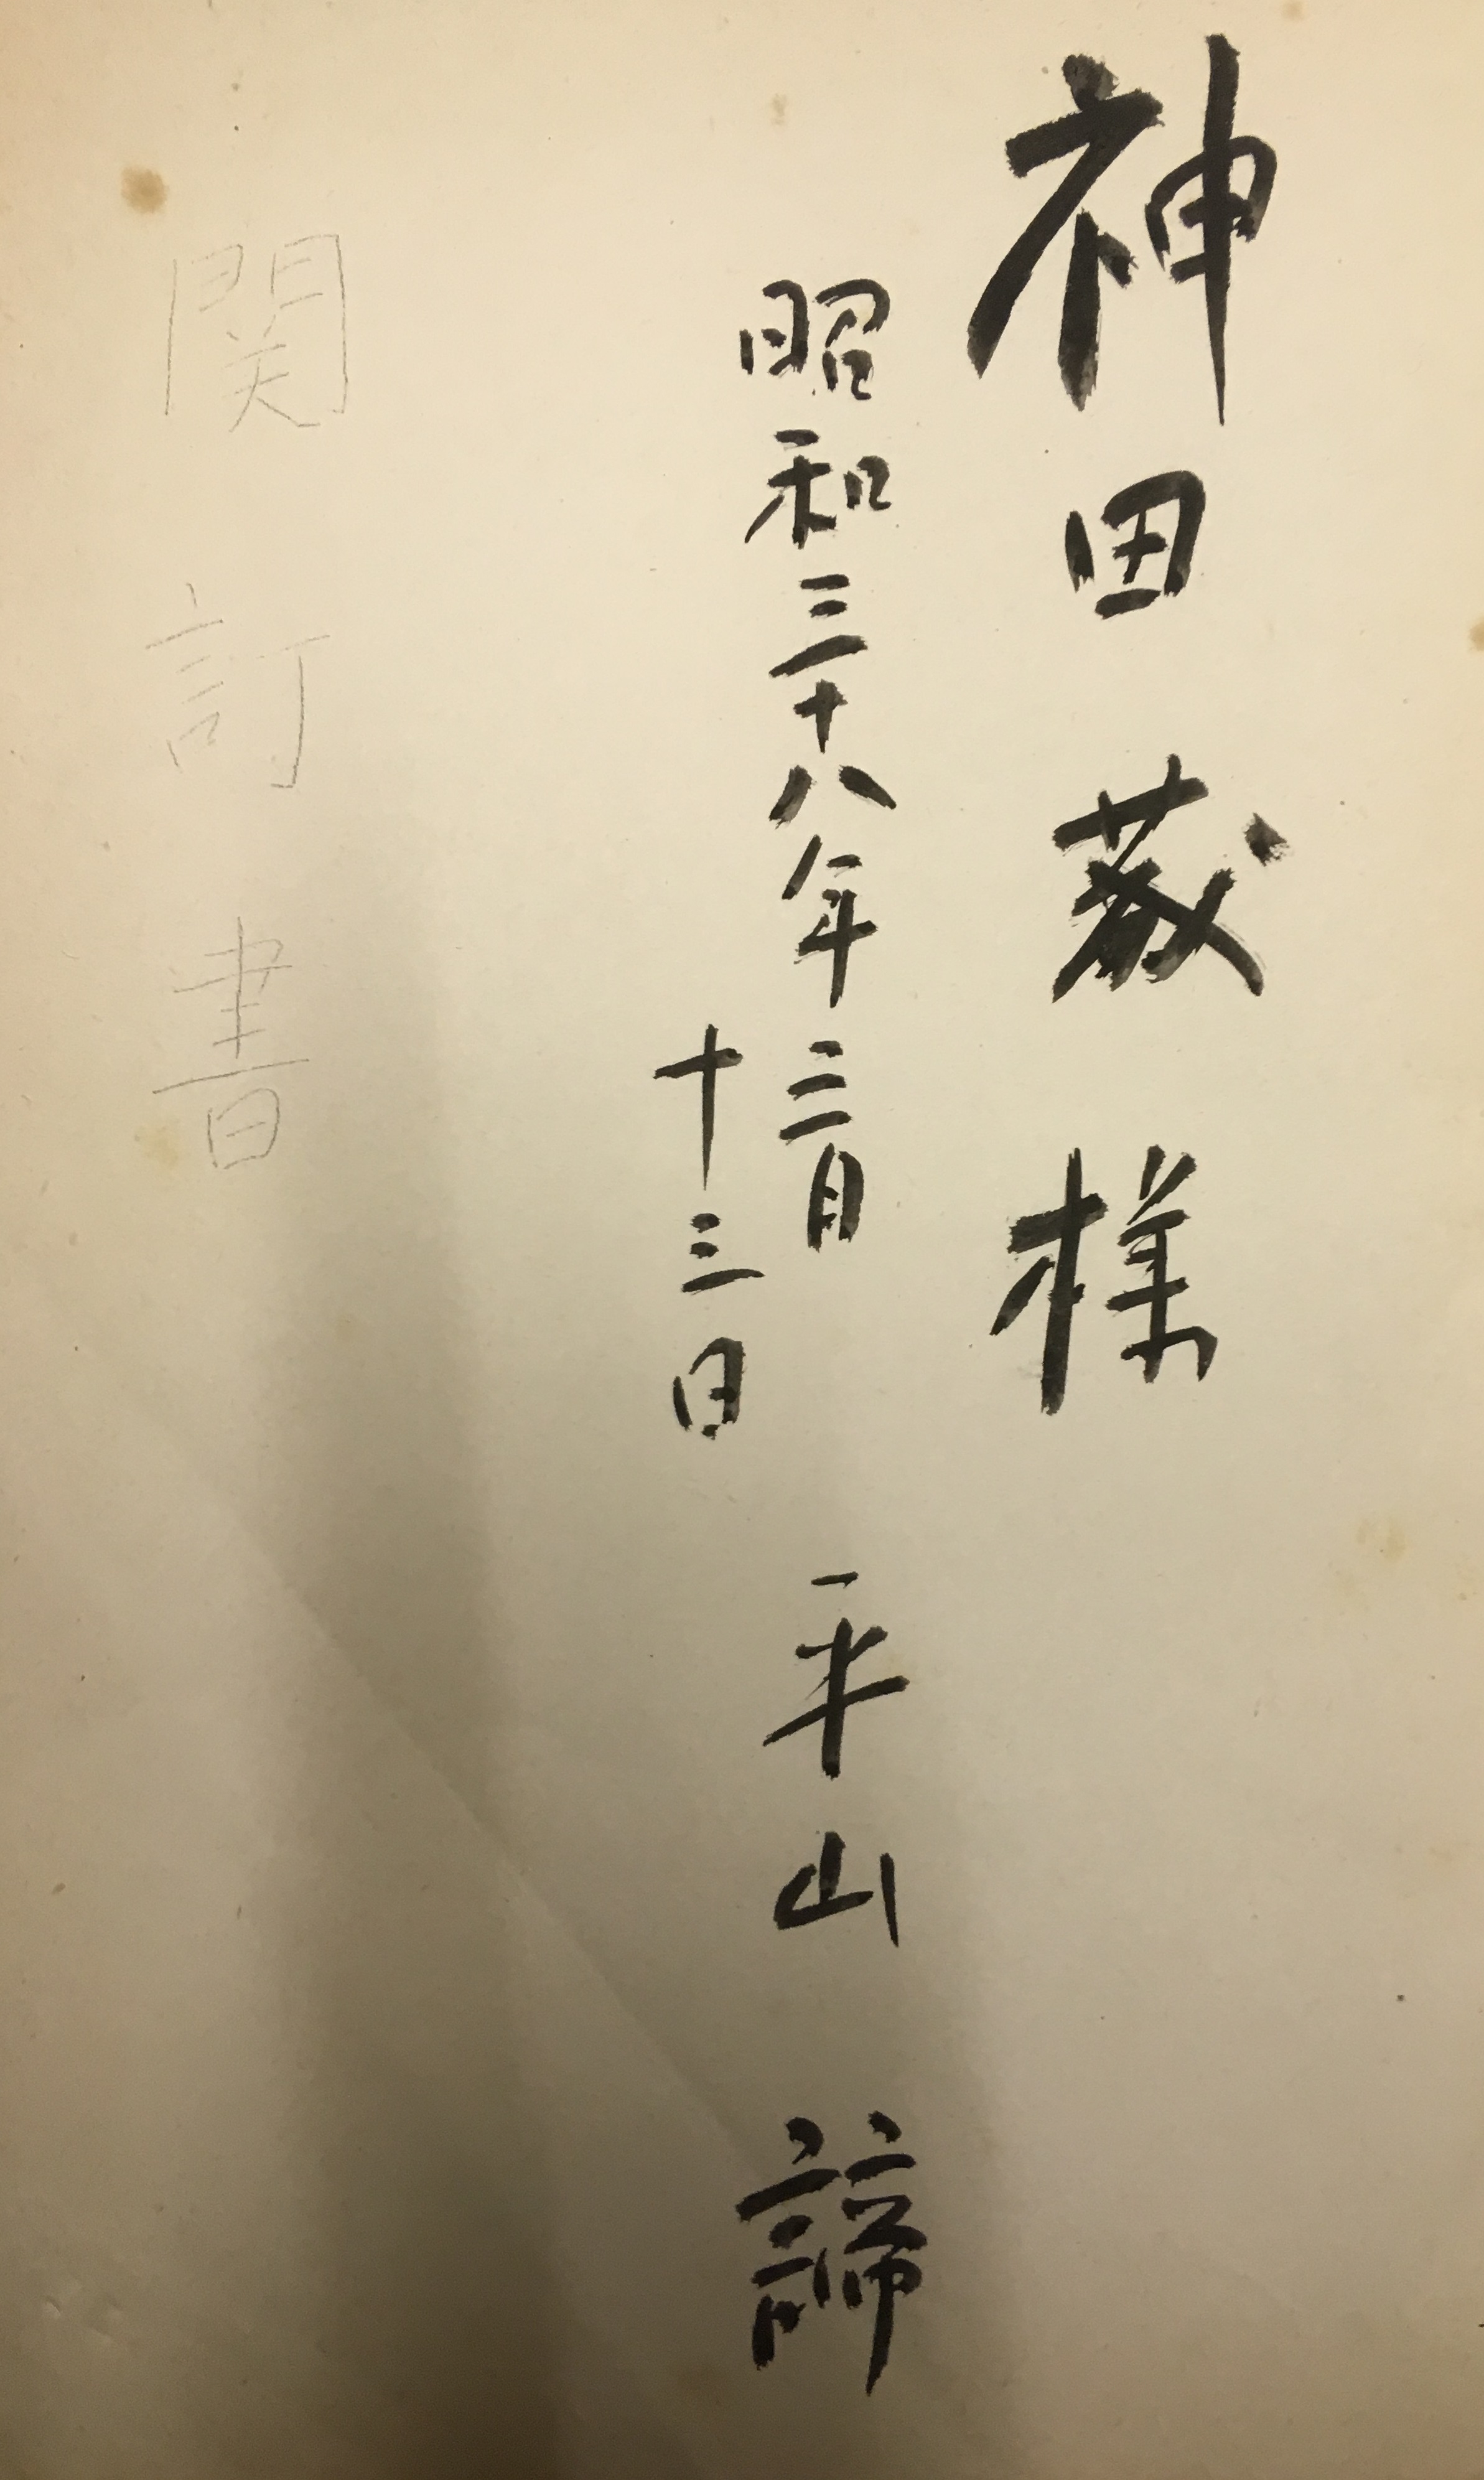 神田蔵様
昭和三十八年三月
十三日
平山諦
関訂書